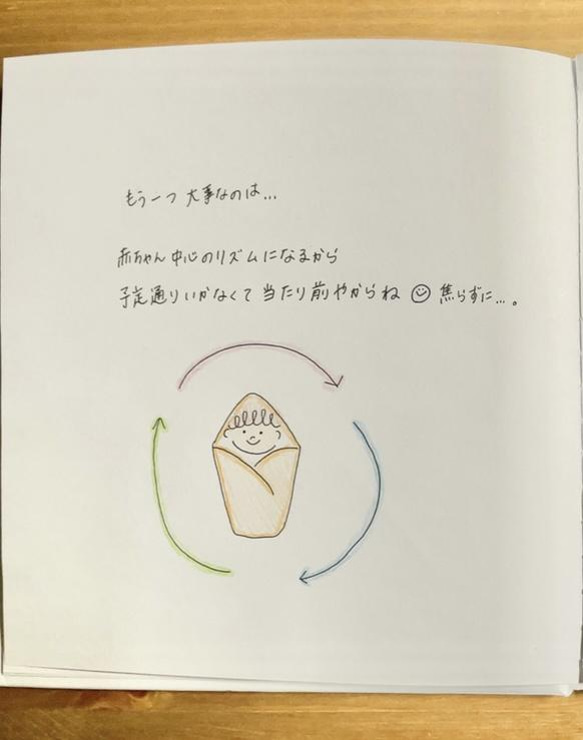 もう一つ大事なのは...
赤ちゃん中心のリズムになるから
予定通りいかなくて当たり前やからね☺焦らずに...。